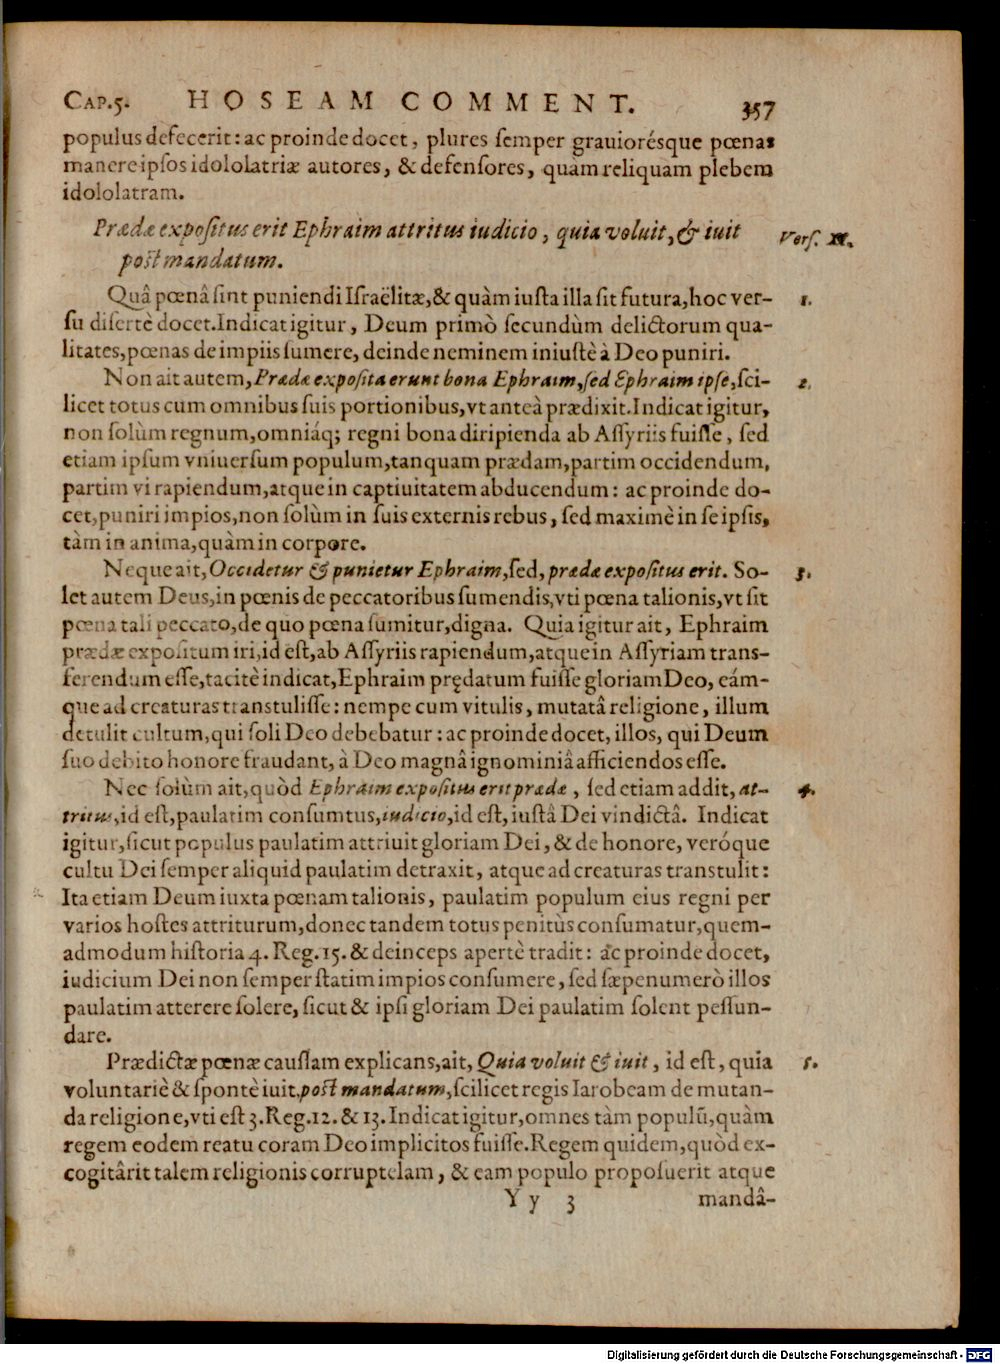 CAP.5. HOSEAM COMMENT. 357
populus defecerit: ac proinde docet, plures ſemper grauiorésque pœnas
manere ipſos idololatriæ autores, & defenſores, quàm reliquam plebem
idololatram.
Prædæ expoſitus erit Ephraim attritus iudicio, quia voluit, & iuit Verſ. 11.
poſt mandatum.
Quâ pœnâ ſint puniendi Iſraëlitæ, & quàm iuſta illa ſit futura, hoc ver- 1.
ſu diſertè docet. Indicat igitur, Deum primò ſecundùm delictorum qua-
litates, pœnas de impiis ſumere, deinde neminem iniuſtè à Deo puniri.
Non ait autem, Prædæ expoſita erunt bona Ephraim, ſed Ephraim ipſe, ſci- 2.
licet totus cum omnibus ſuis portionibus, vt anteà prædixit. Indicat igitur,
non ſolùm regnum, omniáq; regni bona diripienda ab Aſſyriis fuiſſe, ſed
etiam ipſum vniuerſum populum, tanquam prædam, partim occidendum,
partim vi rapiendum, atque in captiuitatem abducendum: ac proinde do-
cet, puniri impios, non ſolùm in ſuis externis rebus, ſed maximè in ſe ipſis,
tàm in anima, quàm in corpore.
Neque ait, Occidetur & punietur Ephraim, ſed, prædæ expoſitus erit. So- 3.
let autem Deus, in pœnis de peccatoribus ſumendis, vti pœna talionis, vt ſit
pœna tali peccato, de quo pœna ſumitur, digna. Quia igitur ait, Ephraim
prædæ expoſitum iri, id eſt, ab Aſſyriis rapiendum, atque in Aſſyriam trans-
ferendum eſſe, tacitè indicat, Ephraim prędatum fuiſſe gloriam Deo, eám-
que ad creaturas transtuliſſe: nempe cum vitulis, mutatâ religione, illum
detulit cultum, qui ſoli Deo debebatur: ac proinde docet, illos, qui Deum
ſuo debito honore fraudant, à Deo magnâ ignominiâ afficiendos eſſe.
Nec ſolùm ait, quòd Ephraim expoſitus erit prædæ, ſed etiam addit, at- 4.
tritus, id eſt, paulatim conſumtus, iudicio, id eſt, iuſtâ Dei vindictâ. Indicat
igitur, ſicut populus paulatim attriuit gloriam Dei, & de honore, veróque
cultu Dei ſemper aliquid paulatim detraxit, atque ad creaturas transtulit:
Ita etiam Deum iuxta pœnam talionis, paulatim populum eius regni per
varios hoſtes attriturum, donec tandem totus penitùs conſumatur, quem-
admodum hiſtoria 4. Reg. 15. & deinceps apertè tradit: ac proinde docet,
iudicium Dei non ſemper ſtatim impios conſumere, ſed ſæpenumerò illos
paulatim atterere ſolere, ſicut & ipſi gloriam Dei paulatim ſolent peſſun-
dare.
Prædictæ pœnæ cauſſam explicans, ait, Quia voluit & iuit, id eſt, quia 5.
voluntariè & ſpontè iuit, poſt mandatum, ſcilicet regis Iarobeam de mutan-
da religione, vti eſt 3. Reg. 12. & 13. Indicat igitur, omnes tàm populũ, quàm
regem eodem reatu coram Deo implicitos fuiſſe. Regem quidem, quòd ex-
cogitârit talem religionis corruptelam, & eam populo propoſuerit atque
Y y 3 mandâ-
Digitalisierung gefördert durch die Deutsche Forschungsgemeinschaft - DFG